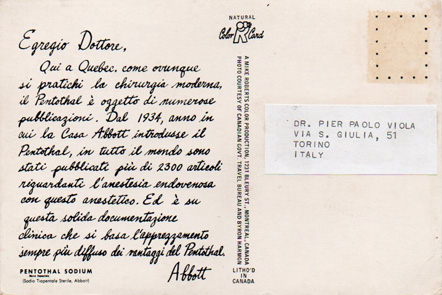 Egregio Dottore,
Qui a Quebec, come ovunque
si pratichi la chirurgia moderna,
il Pentothal è oggetto di numerose
pubblicazioni. Dal 1934, anno in
cui la Casa Abbott introdusse il
Pentothal, in tutto il mondo sono
stati pubblicati più di 2300 articoli
riguardanti l'anestesia endovenosa
con questo anestetico. Ed è su
questa solida documentazione
clinica che si basa l'apprezzamento
sempre più diffuso dei vantaggi del Pentothal.
Abbott
PENTOTHAL SODIUM
(Sodio Tiopentale Sterile, Abbott)
NATURAL
Color Card
A MIKE ROBERTS COLOR PRODUCTION, 1231 BLEURY ST. MONTREAL, CANADA
PHOTO COURTESY OF CANADIAN GOVT. TRAVEL BUREAU AND BYRON HARMON
LITHO'D IN
CANADA
DR. PIER PAOLO VIOLA
VIA S. GIULIA, 51
TORINO
ITALY